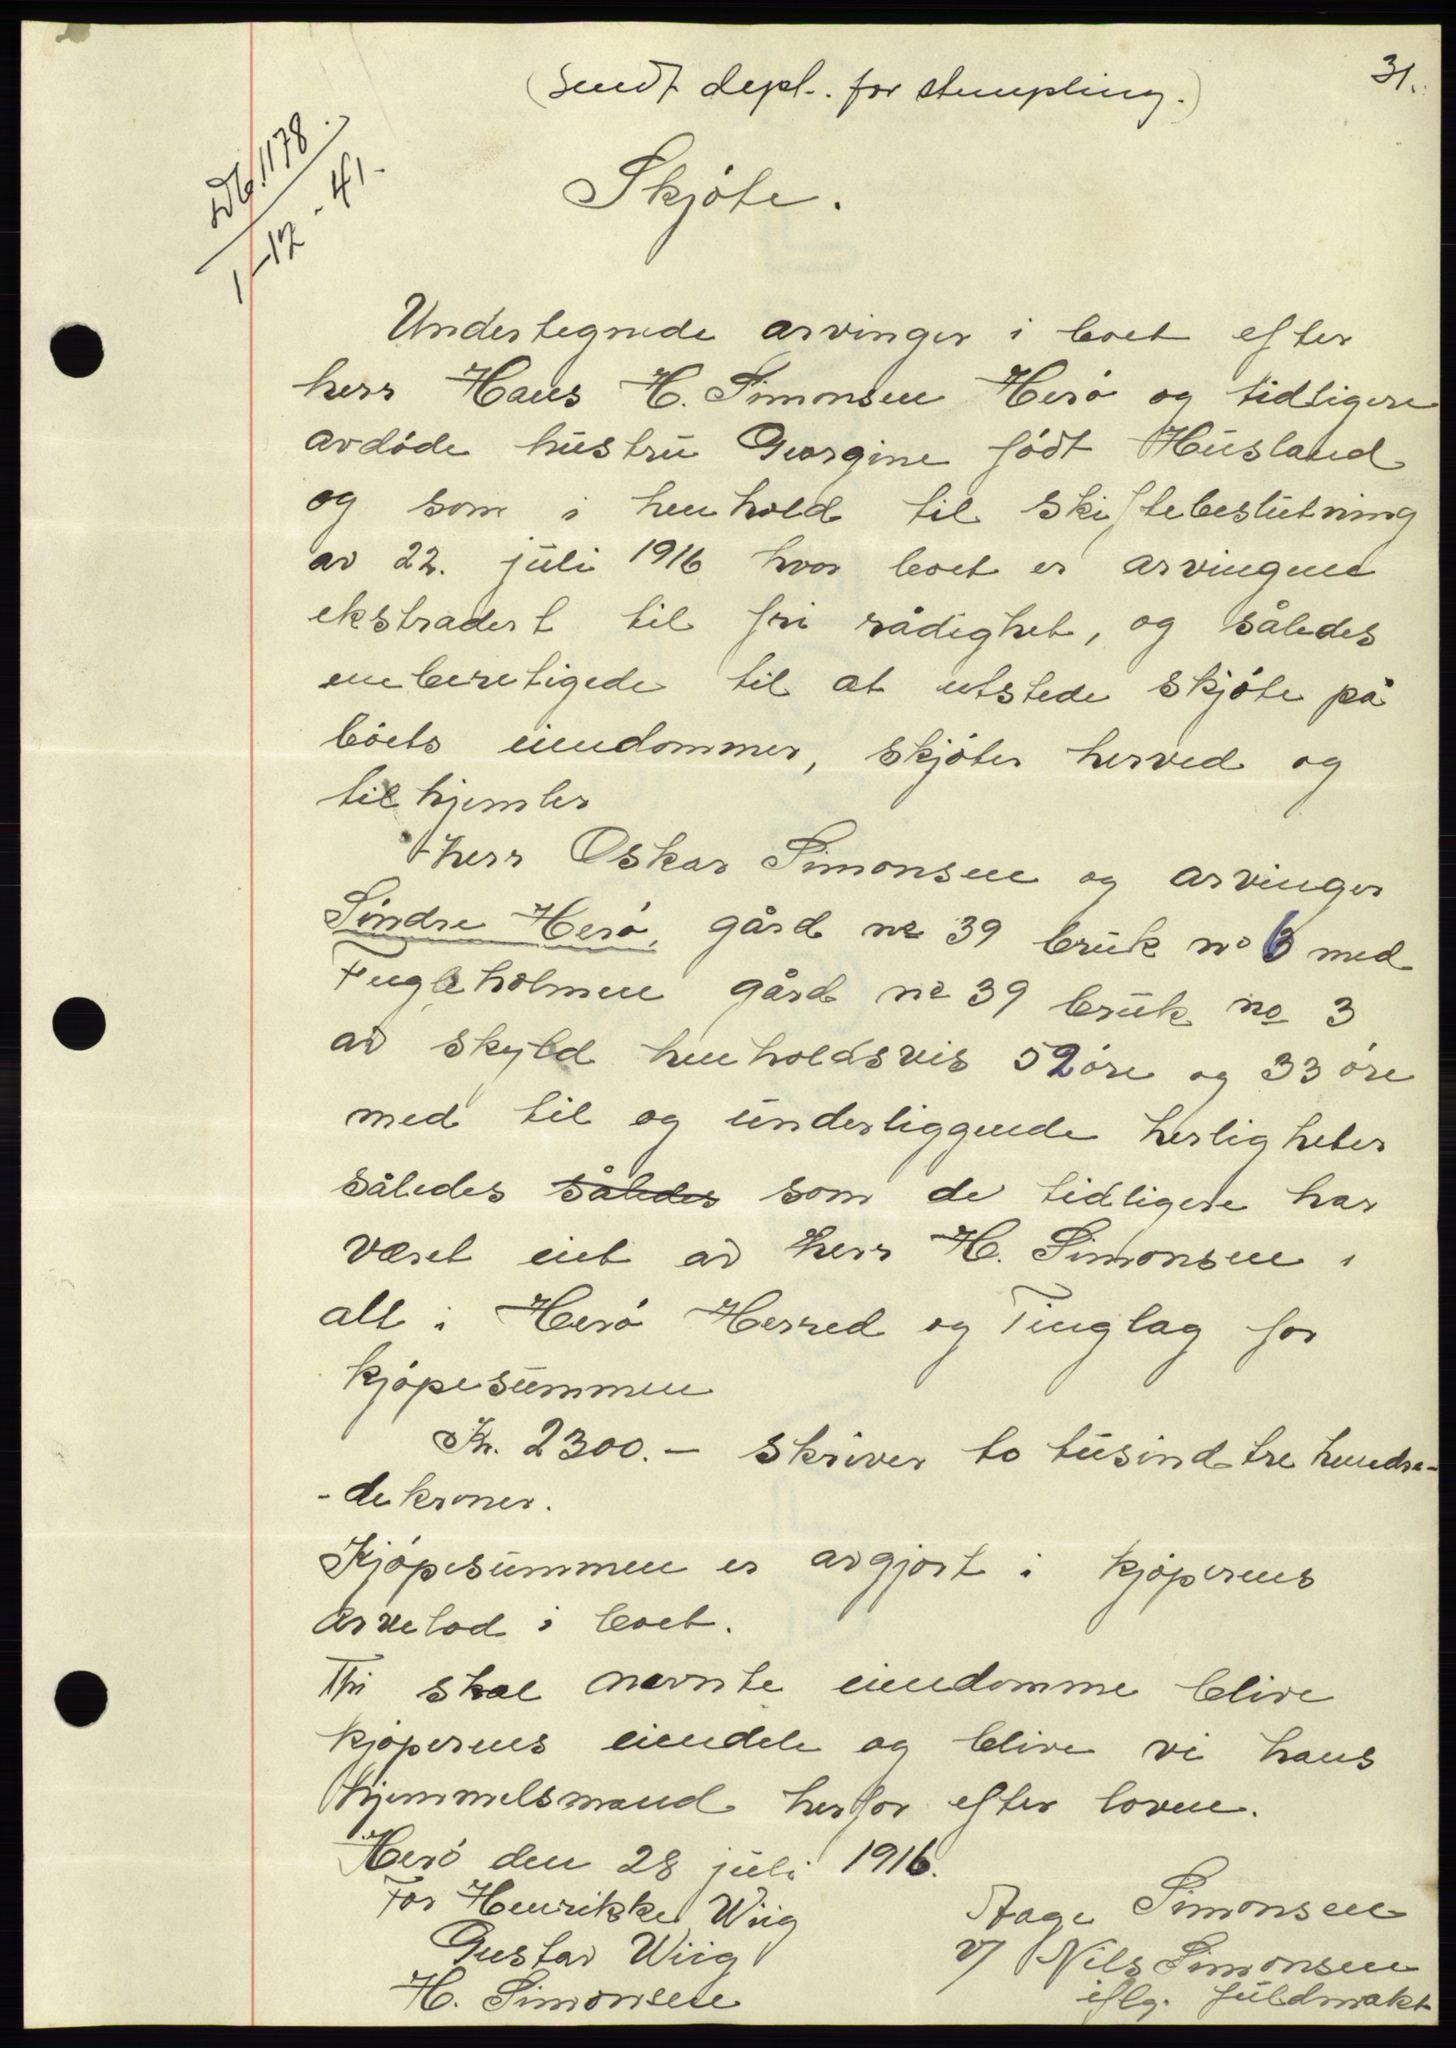 (Sendt dept. for stempling.)
31.
Db. 1178.
1-12-41.
Skjöte.
Undertegnede arvinger i boet efter
herr Hans H. Simonsen Herö og tidligere
avdöde hustru Georgine födt Husland
og som i henhold til skiftebeslutning
av 22. juli 1916 hvor boet er arvingene
ekstradert til fri rådighet, og således
eneberetigede til at utstede skjöte på
böets eiendommer, skjöter herved og
tilhjemler
Herr Oskar Simonsen og arvinger
Söndre Herö, gård no 39 bruk no 6 med
Fugleholmen gård no 39 bruk no 3
av skyld henholdsvis 52 öre og 33 öre
med til og underliggende herligheter
således således som de tidligere har
været eiet av herr H. Simonsen i
alt i Herö Herred og Tinglag for
kjöpesummen
Kr. 2300.- skriver to tusind tre hundre-
-de kroner.
Kjöpesummen er avgjort i kjöperens
arvelod i boet.
Thi skal nævnte eiendomme blive
kjöperens eiendele og blive vi hans
hjemmelsmænd herfor efter loven.
Herö den 28 juli 1916.
For Henrikke Wiig
Gustav Wiig
H. Simonsen
Aage Simonsen
v/ Nils Simonsen
iflg. fuldmakt